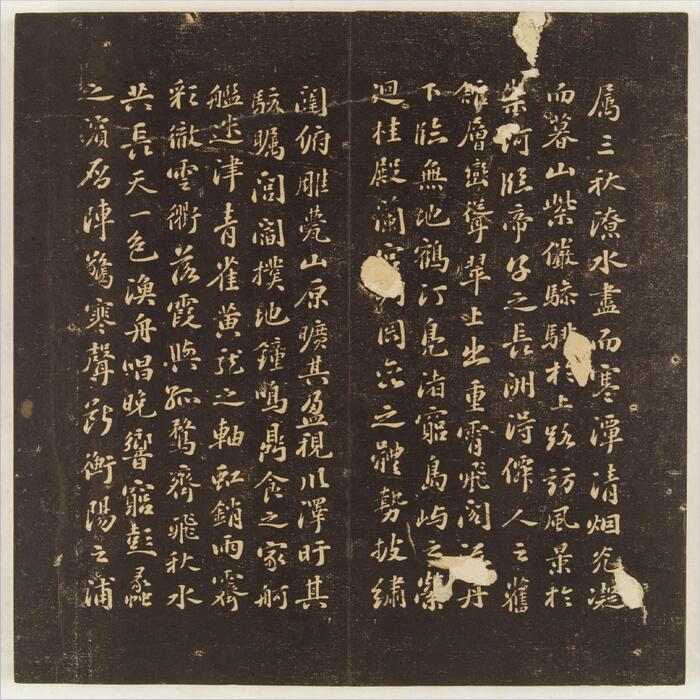 属三秋潦水盡而寒潭清烟光凝
而暮山紫儼驂騑於上路訪風景於
崇阿臨帝子之長洲得僊人之舊
館層巒聳翠上出重霄飛閣流丹
下臨無地鶴汀鳧渚窮島嶼之縈
迴桂殿蘭宮岡巒之體勢披繡
闥俯雕甍山原曠其盈視川澤盱其
駭矚閭閻撲地鐘鳴鼎食之家舸
艦迷津青雀黃龍之軸虹銷雨霽
彩徹雲衢落霞與孤鶩齊飛秋水
共長天一色漁舟唱晚響窮彭蠡
之濱雁陣驚寒聲断衡陽之浦